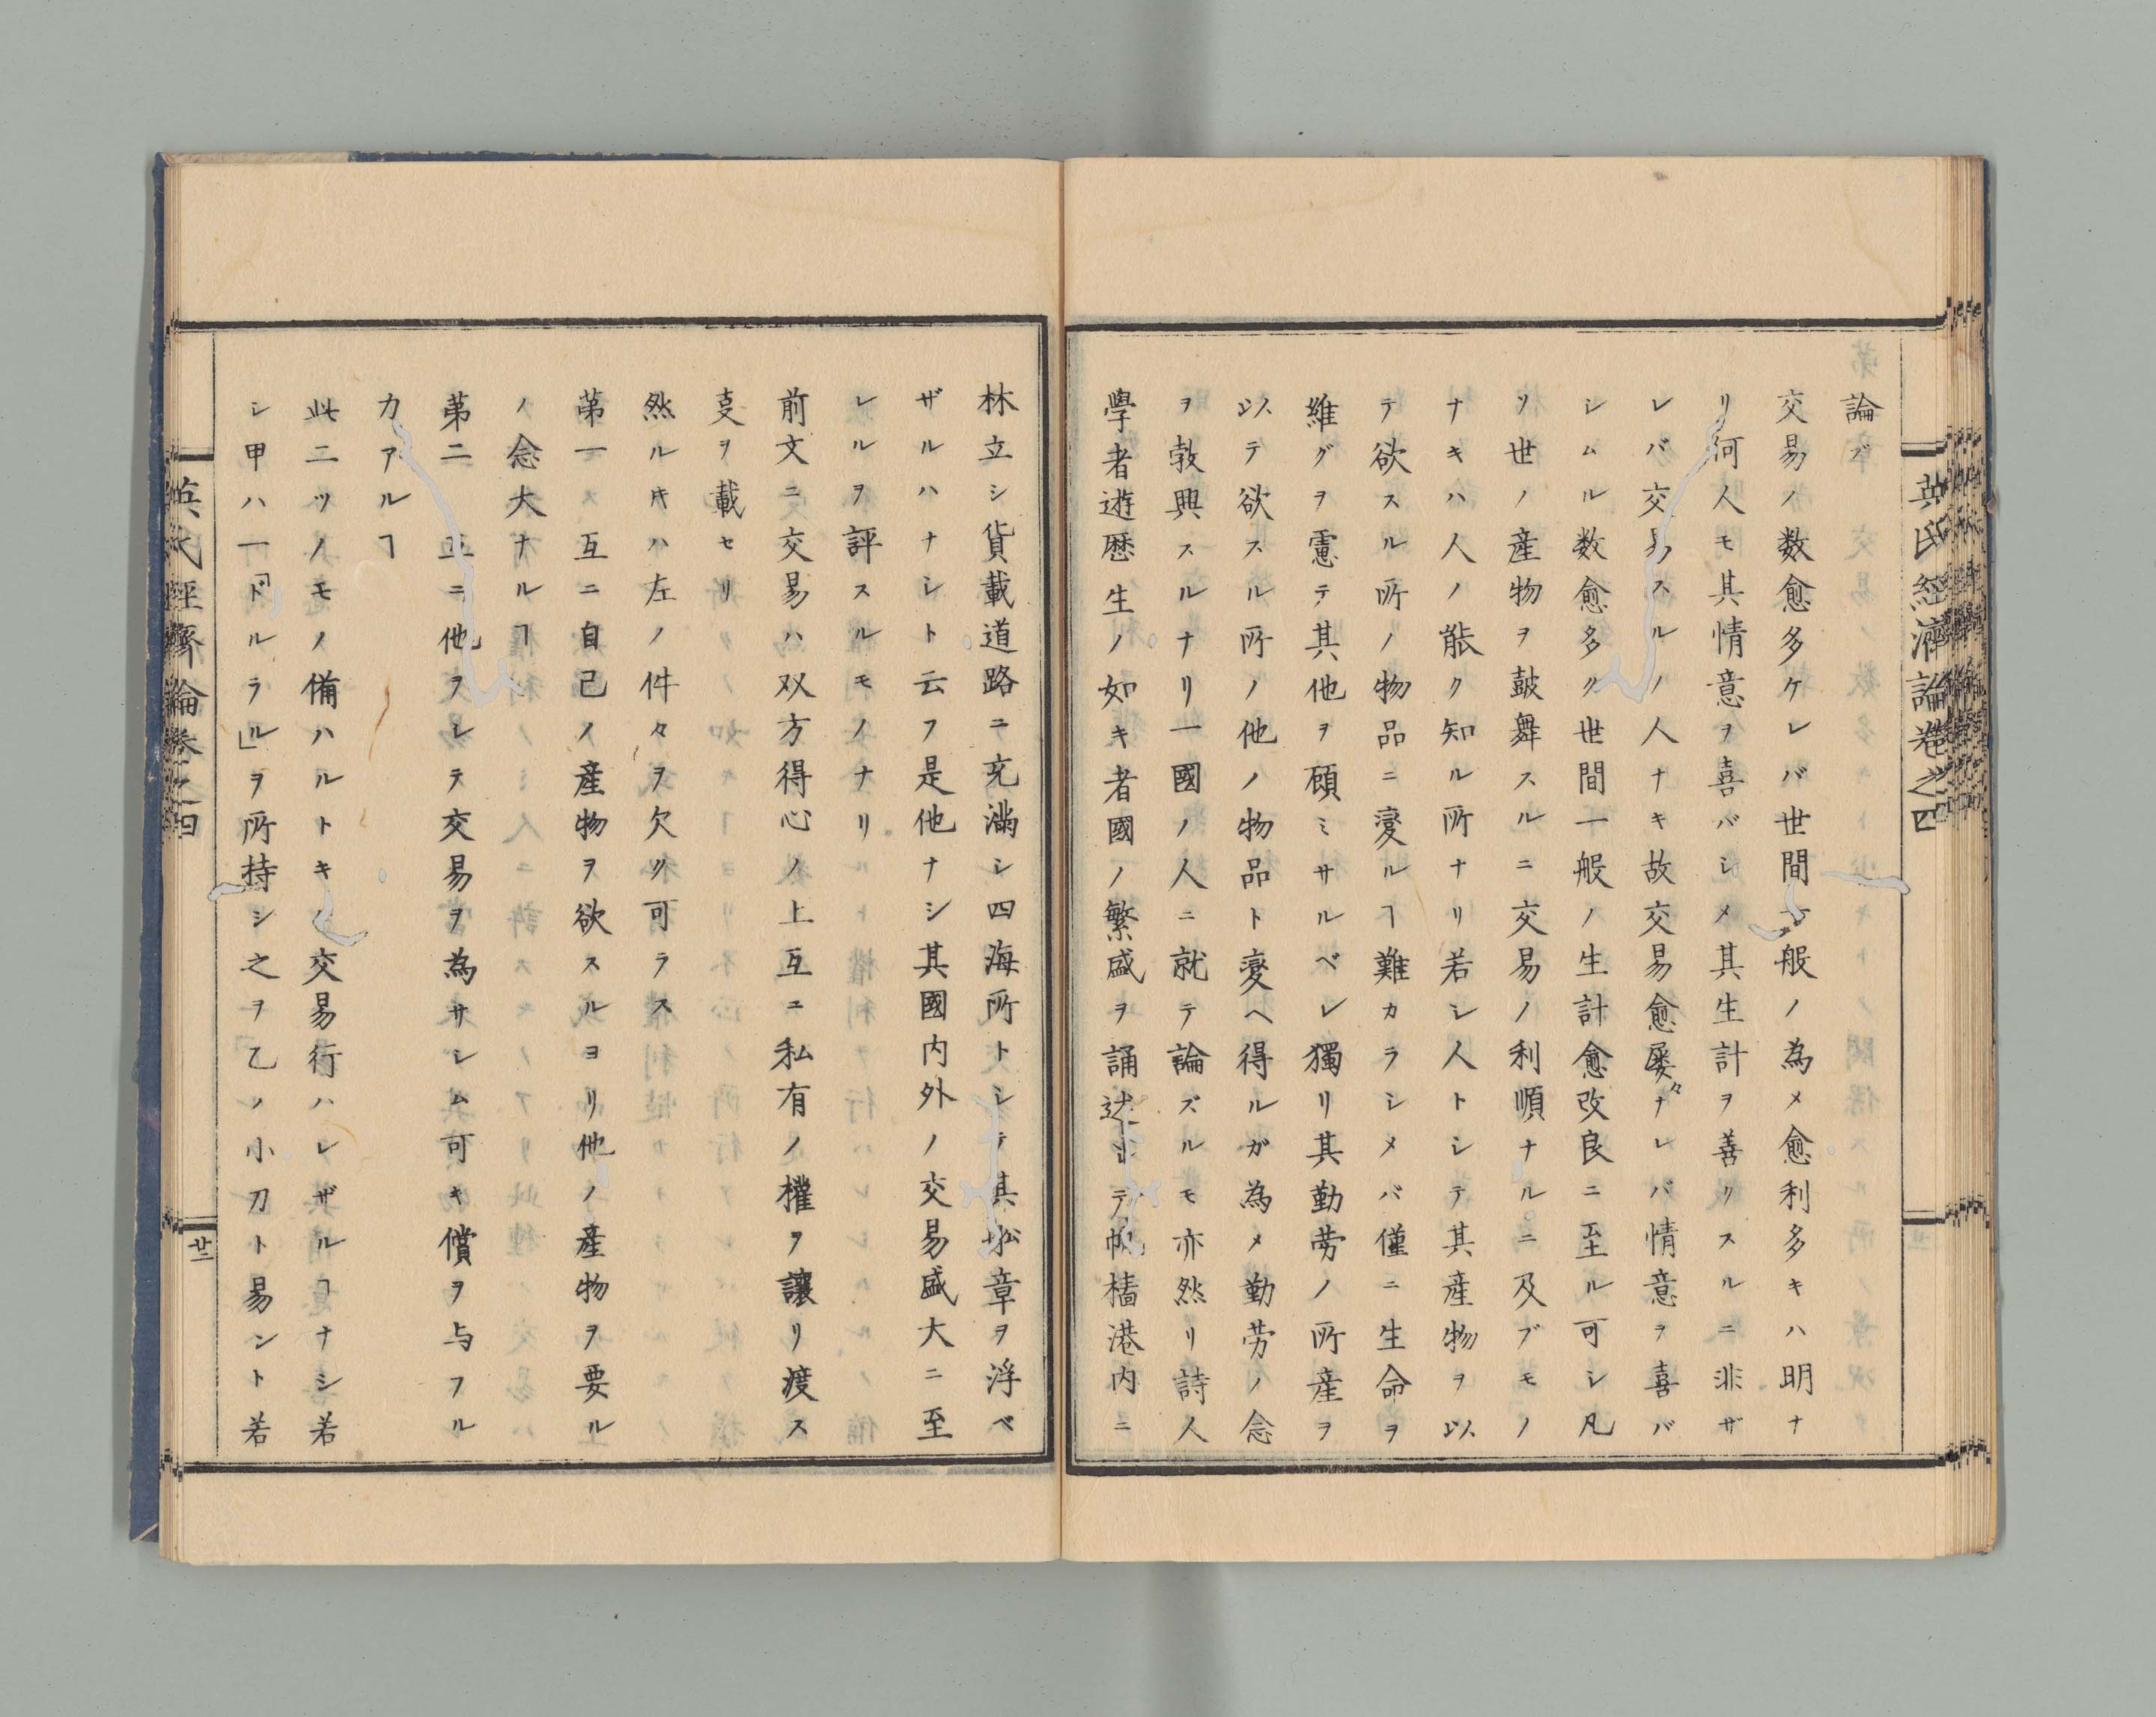 英氏經濟論卷之四
論ズ
交易ノ数愈多ケレバ世間一般ノ為メ愈利多キハ明ナ
リ何人モ其情意ヲ喜バシメ其生計ヲ善クスルニ非ザ
レバ交易スルノ人ナキ故交易愈屡々ナレバ情意ヲ喜バ
シムル数愈多ク世間一般ノ生計愈改良ニ至ル可シ凡
ソ世ノ産物ヲ鼓舞スルニ交易ノ利順ナルニ及ブモノ
ナキハ人ノ能ク知ル所ナリ若シ人トシテ其産物ヲ以
テ欲スル所ノ物品ニ変ルヿ難カラシメバ僅ニ生命ヲ
維グヲ慮テ其他ヲ顧ミサルベシ獨リ其勤労ノ所産ヲ
以テ欲スル所ノ他ノ物品ト変ヘ得ルガ為メ勤労ノ念
ヲ敦興スルナリ一國ノ人ニ就テ論ズルモ亦然リ詩人
學者遊歴生ノ如キ者國ノ繁盛ヲ誦述シテ帆檣港内ニ
林立シ貨載道路ニ充満シ四海所トシテ其 章ヲ浮ベ
ザルハナシト云フ是他ナシ其國内外ノ交易盛大ニ至
レルヲ評スルモノナリ
前文ニ交易ハ双方得心ノ上互ニ私有ノ權ヲ讓リ渡ス
叓ヲ載セリ
然ルキハ左ノ件々ヲ欠ク可ラス
第一 互ニ自己ノ産物ヲ欲スルヨリ他ノ産物ヲ要ル
ノ念大ナルヿ
第二 互ニ他ヲシテ交易ヲ為サシム可キ償ヲ与フル
カアルヿ
此二ツノモノ備ハルトキハ交易行ハレザルヿナシ若
シ甲ハ一「ドルラル」ヲ所持シ之ヲ乙ノ小刀ト易ント若
英氏經齊論卷之四
廿二